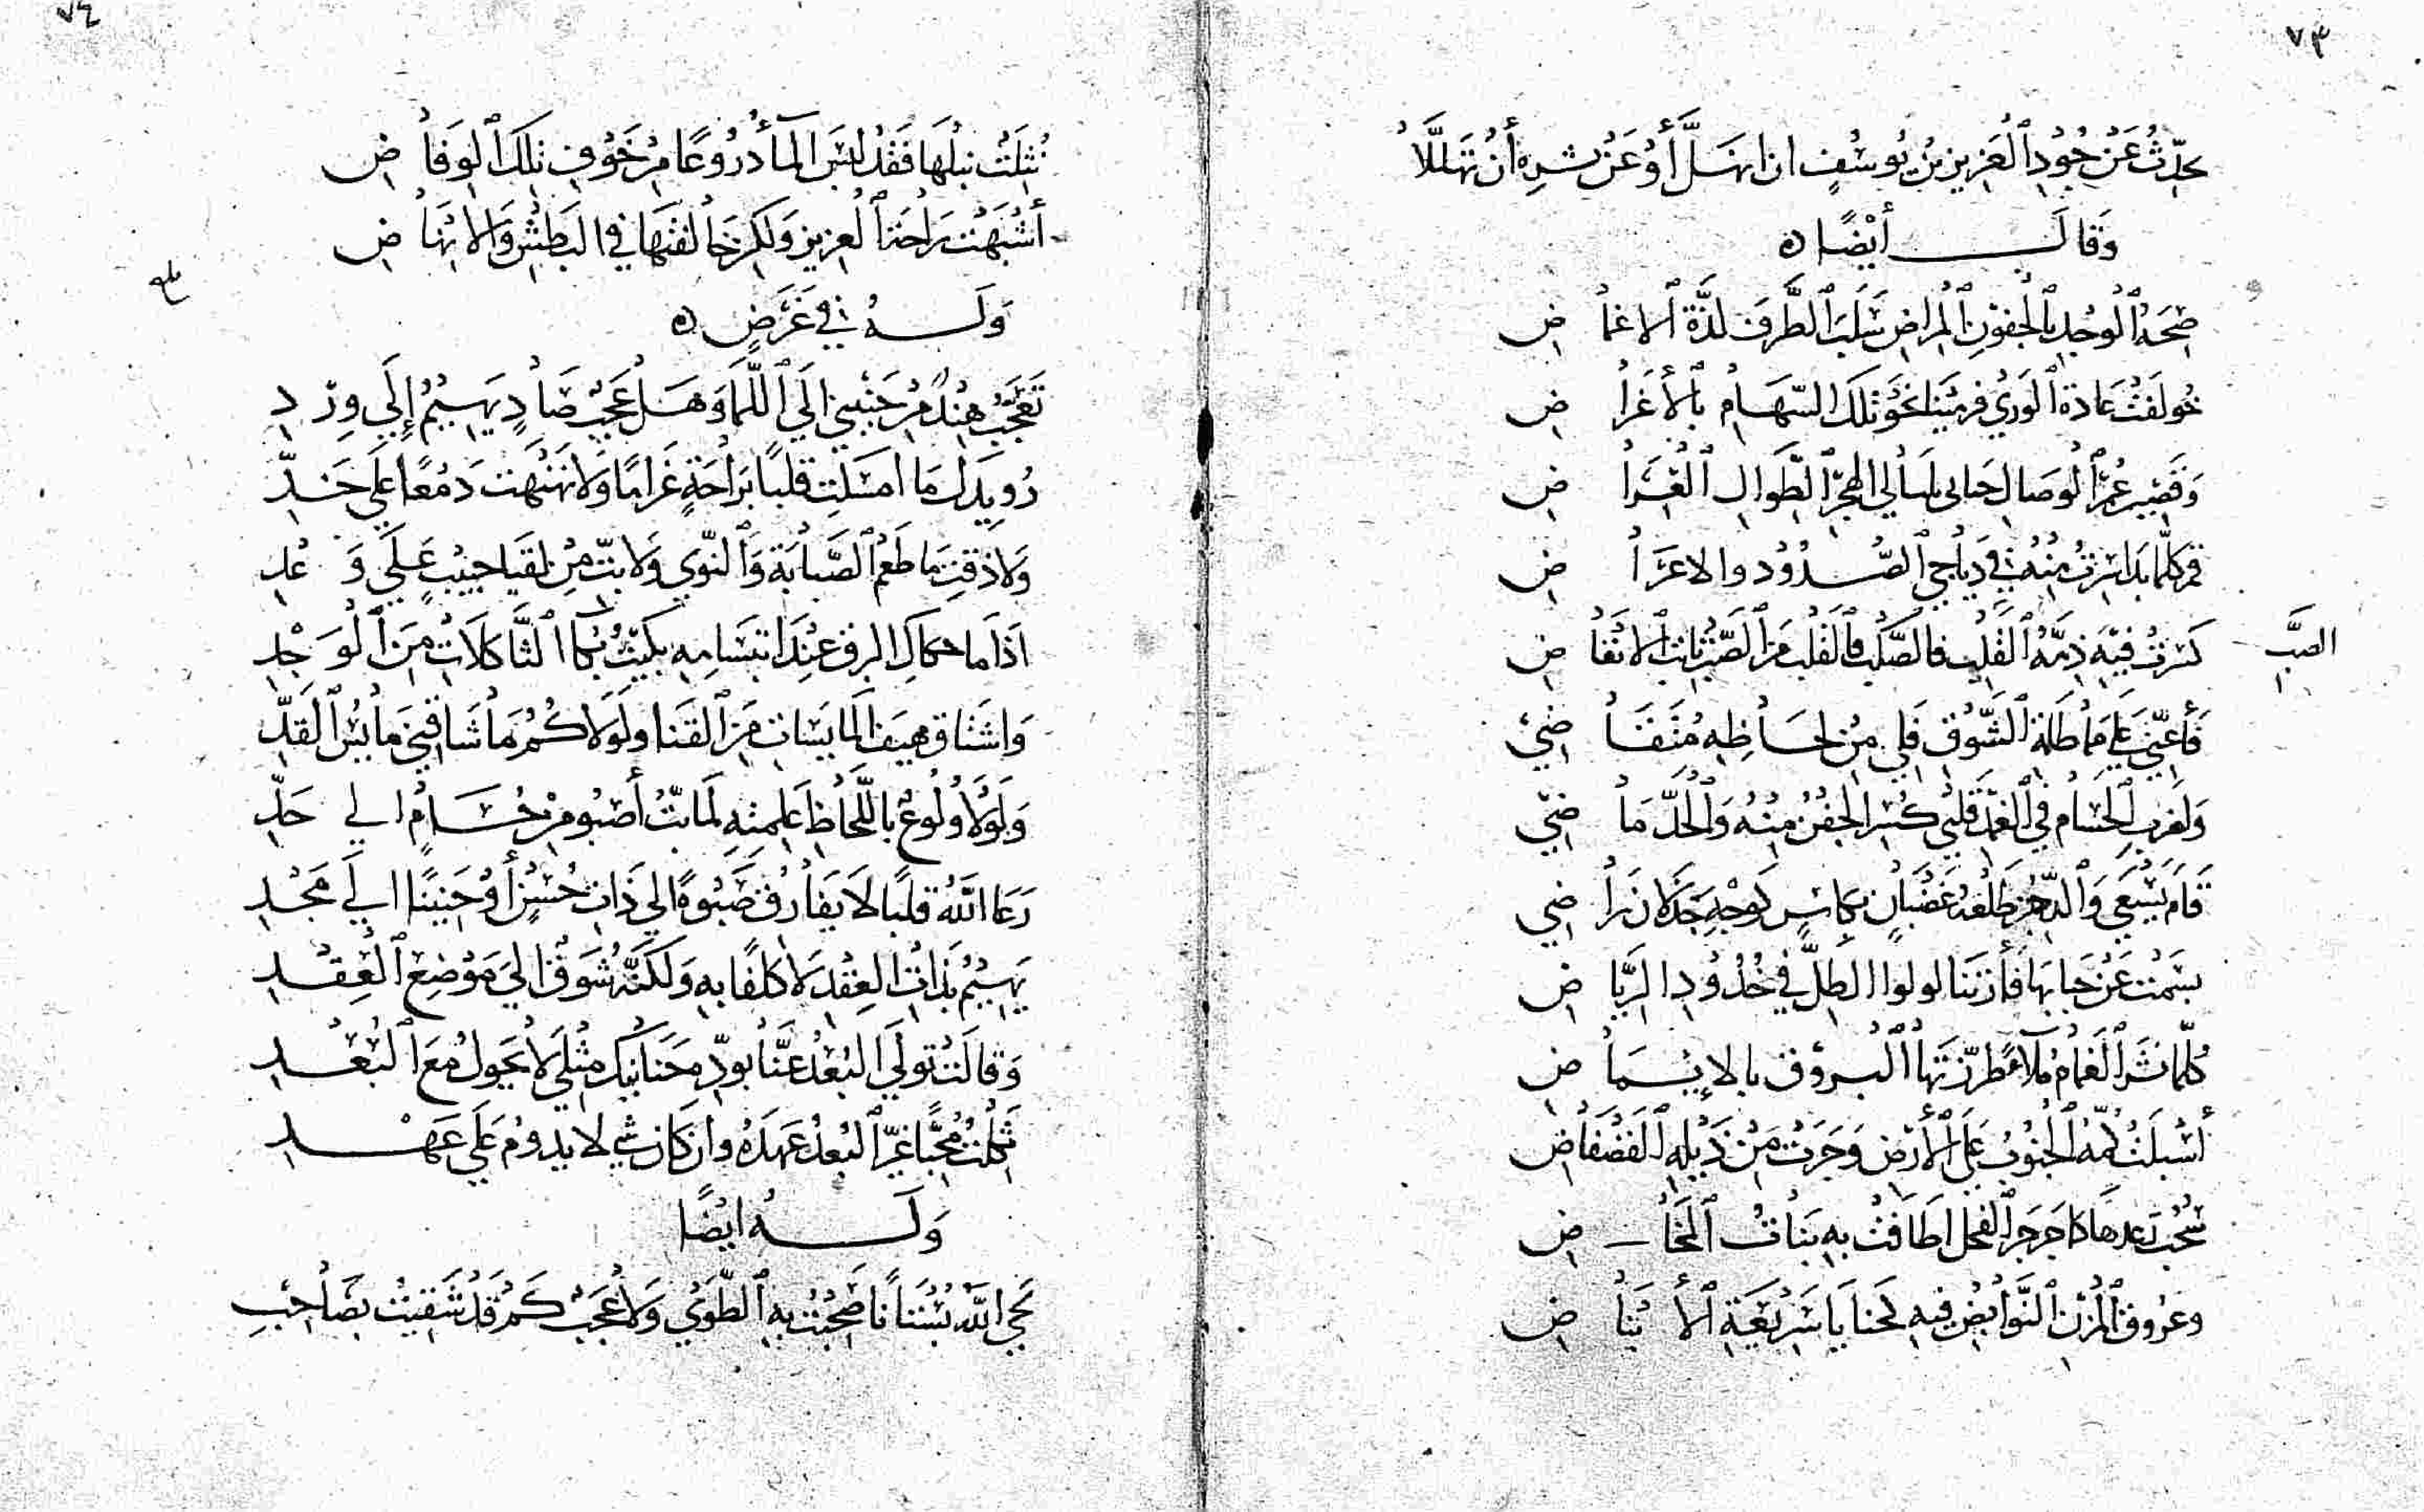 ٧٣
حدّث عَنْ جُودِ ٱلعَزيزِ بْنِ يُوسُفٍ ان انهَلَّ أوْ عَنْ بشره أنْ تَهَلَّلَا
وَقَالَ أيْضًا ه
صِحَّة ٱلوجْدِ بِٱلجُفونِ ٱلمِراضِ سَلَبَ ٱلطَّرفَ لذَّةَ ٱلاغماض
خُولفَتْ عَادة ٱلوَرَي فرمَيْنا نحوَ تلكَ السّهَام بٱلأغراض
وَقَصِير عُمْر ٱلوصَال حَبَانِي بليالي الهجْر ٱلطّوَالِ ٱلعراض
قمر كلّما بَدَا سِرتُ مِنهُ في دَيَاجي ٱلصُّدُود والاعراض
كسَرتْ فيهِ ذمّةُ ٱلقَلب فالصَّلب فٱلقَلب مَن ٱلصّبر بَانَت ٱلانقاض
الصَّب
فأعِنّي عَلي مُمَاطَلةِ ٱلشَّوق فلي مِن لحَاظِهِ مُتقَاضي
وَلغرب ٱلحسَام في ٱلغمْد قلبي كسْر الجفْن مِنْهُ وَٱلحَدّ مَاضي
قَامَ يَسْعَي وَٱلدّهْر طَلْعَةُ غَضْبَانٍ بكاسٍ كوجْهِ جَذلان رَاضي
بسَمْت عَن حَبَابهَا فأرتنَا لولوا الطلّ في خُدُودِ الرّيَاض
كلّما نَشرَ ٱلغَمام مُلآءً طَرّزتهَا ٱلبروق بالايمَاض
أسْبلَتْ كمّهُ ٱلجنُوبُ عَلَي ٱلأرْض وَجَرَتْ مِنْ ذَيْلهِ ٱلفَضْفاض
سُحْب رَعدهَا كما جَرجَرَ ٱلفحل اطَافَتْ بهِ بَناتُ ٱلمخَاض
وَعُروق ٱلمزْن ٱلنّوَابض فيهِ لحنايَا سَريْعَةِ ٱلأنبَاض
٧٤
نُثِلَتْ نبلُهَا فَقَدْ لبسَ المآءُ دروعًا مِن خَوْفِ تلكَ ٱلوفَاض
أشْبَهَتْ رَاحَة ٱلعزيز وَلكِن خالفتهَا في البَطشِ وَالانهَاض
وَلَهُ في غَرَضٍ ه
تعَجَّبُ هِنْدٌ مِنْ حَنِيني الي ٱللّمَا وَهَل عَجَبٌ صَادٍ يَهيْمُ إلَي وِرْدِ
رُويدكِ مَا امسَكتِ قلبًا برَاحَةٍ غَرامًا وَلا نَهْنَهت دَمْعًا عَلَي خَدِّ
وَلا ذقتِ مَا طَعْم ٱلصّبَابَة وَٱلنّوَي وَلا بتِّ مِن لقيَا حَبيْبٍ عَلَي وَعْدِ
اذا ما حكاكِ البرق عِندَ ابتسَامهِ بكَيْتُ بُكآ ٱلثّاكلاتِ مِنَ ٱلوَجْدِ
وَاشتَاق هِيَف المايسَاتِ مَن ٱلقَنا ولَولاكُمُ مَا شَاقَني مَايسُ ٱلقدِّ
وَلَوْلا وُلُوعٌ باللّحَاظِ عَلمنهِ لَمَا بتُّ أصْبُو مِن حُسَامٍ الي حَدِّ
رَعَا اللَّهُ قلبًا لا يفَارقُ صَبوةً الي ذَاتِ حُسْنٍ أوْ حَنِينًا الي مَجْدِ
يَهيْمُ بذَاتِ العِقْدِ لَا كلفًا بهِ وَلكنّهُ شَوقًا الي مَوْضِعِ ٱلعِقْدِ
وَقالَتْ تَولّي البُعْدُ عَنَّا بودّهِ حَنَانيكِ مثْلي لا يَحُولُ مَعَ ٱلبُعْدِ
ثكلْتُ مُحبًّا غيّر ٱلبُعْدُ عَهدَهُ وان كانَ شي لا يدومُ عَلَي عَهْدِ
وَلَهُ ايْضًا
لَحَي اللَّهُ بُسْتَانًا صَحِبْتُ بهِ ٱلطّوَي وَلا عَجَبٌ كَمْ قَدْ شَقِيتُ بصَاحِبِ